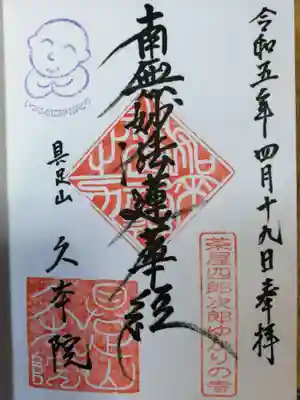 令和五年四月十九日奉拝
茶屋四郎次郎ゆかりの寺
南無妙法蓮華経
具足山
久本院